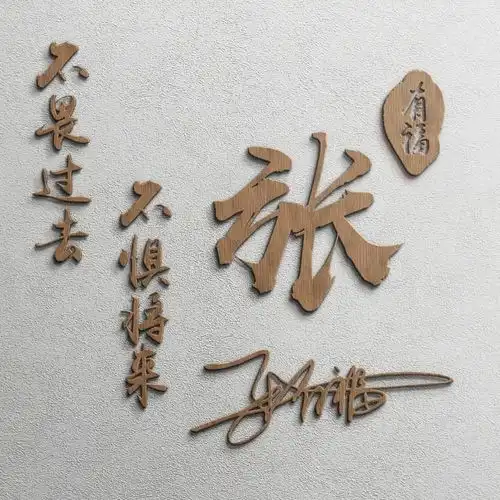 不畏过去
不惧将来
张
有福
张有福